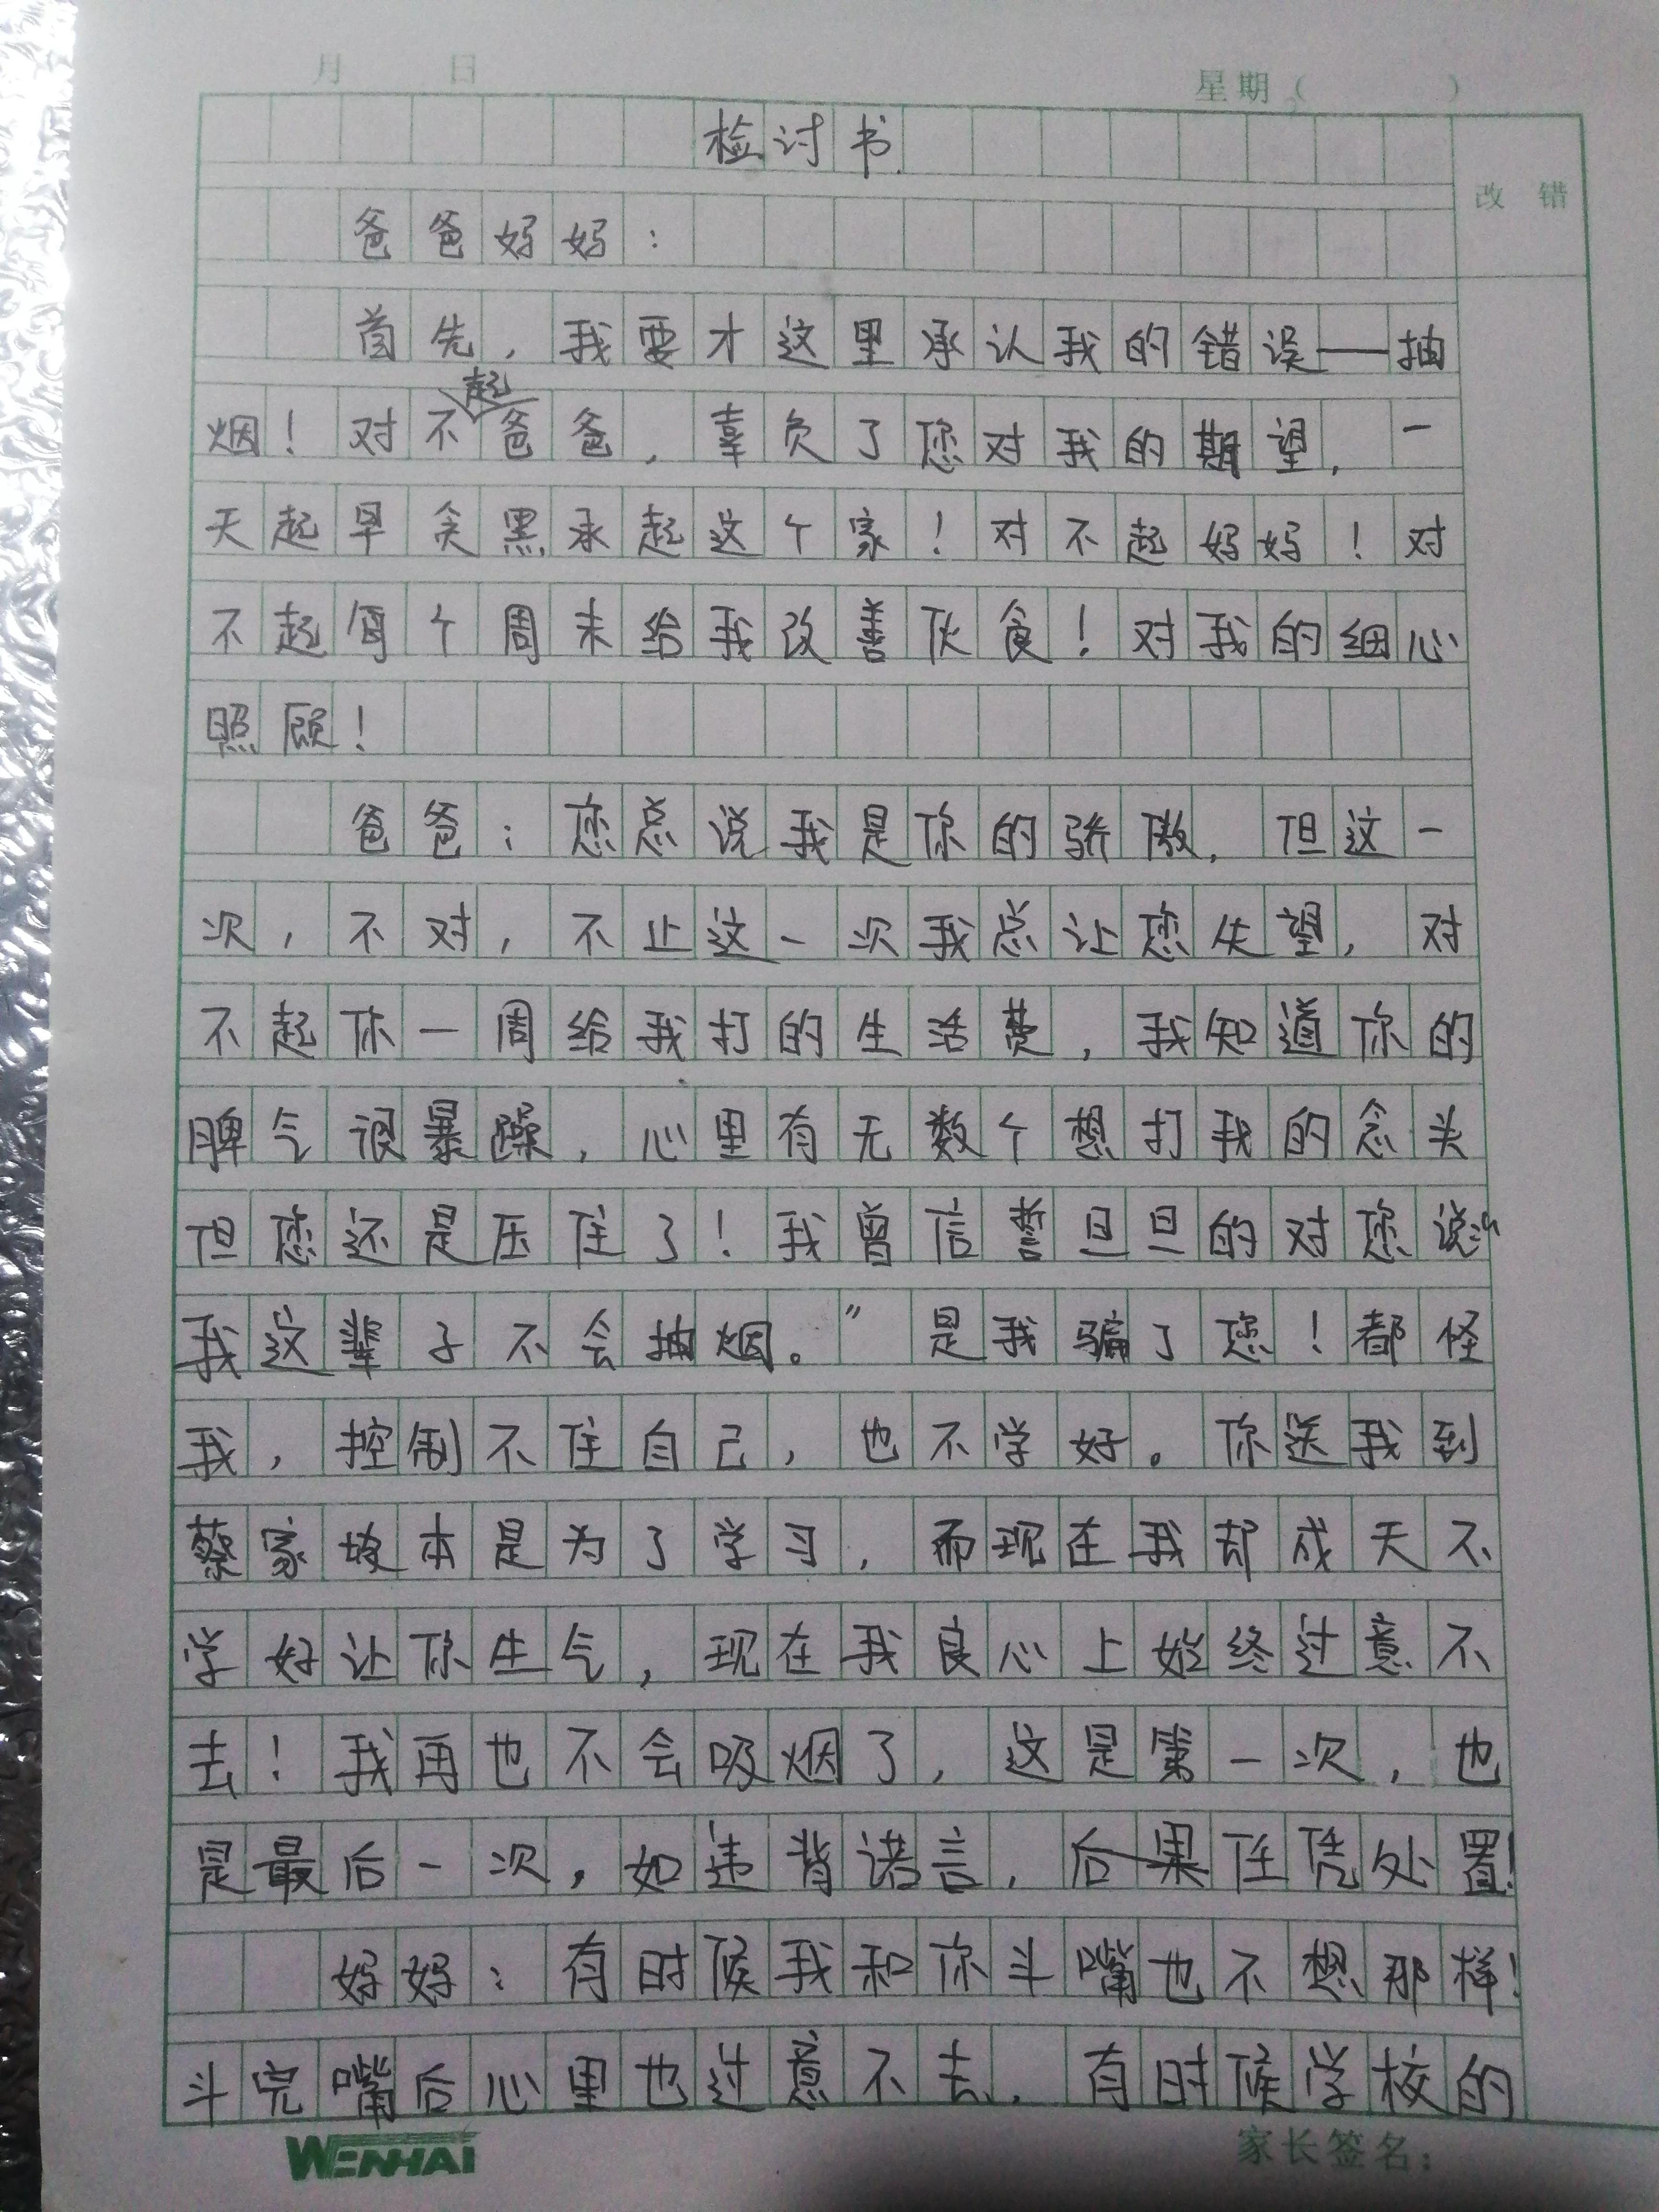 月 日 星期（ ）
检讨书
改 错
爸爸妈妈：
首先，我要才这里承认我的错误——抽
烟！对不起爸爸，辜负了您对我的期望，一
天起早贪黑承起这个家！对不起妈妈！对
不起每个周末给我改善伙食！对我的细心
照顾！
爸爸：您总说我是你的骄傲，但这一
次，不对，不止这一次我总让您失望，对
不起你一周给我打的生活费，我知道你的
脾气很暴躁，心里有无数个想打我的念头
但您还是压住了！我曾信誓旦旦的对您说：“
我这辈子不会抽烟。”是我骗了您！都怪
我，控制不住自己，也不学好。你送我到
蔡家坡本是为了学习，而现在我却成天不
学好让你生气，现在我良心上始终过意不
去！我再也不会吸烟了，这是第一次，也
是最后一次，如违背诺言，后果任凭处置！
妈妈：有时候我和你斗嘴也不想那样！
斗完嘴后心里也过意不去，有时候学校的
WENHAI 家长签名：